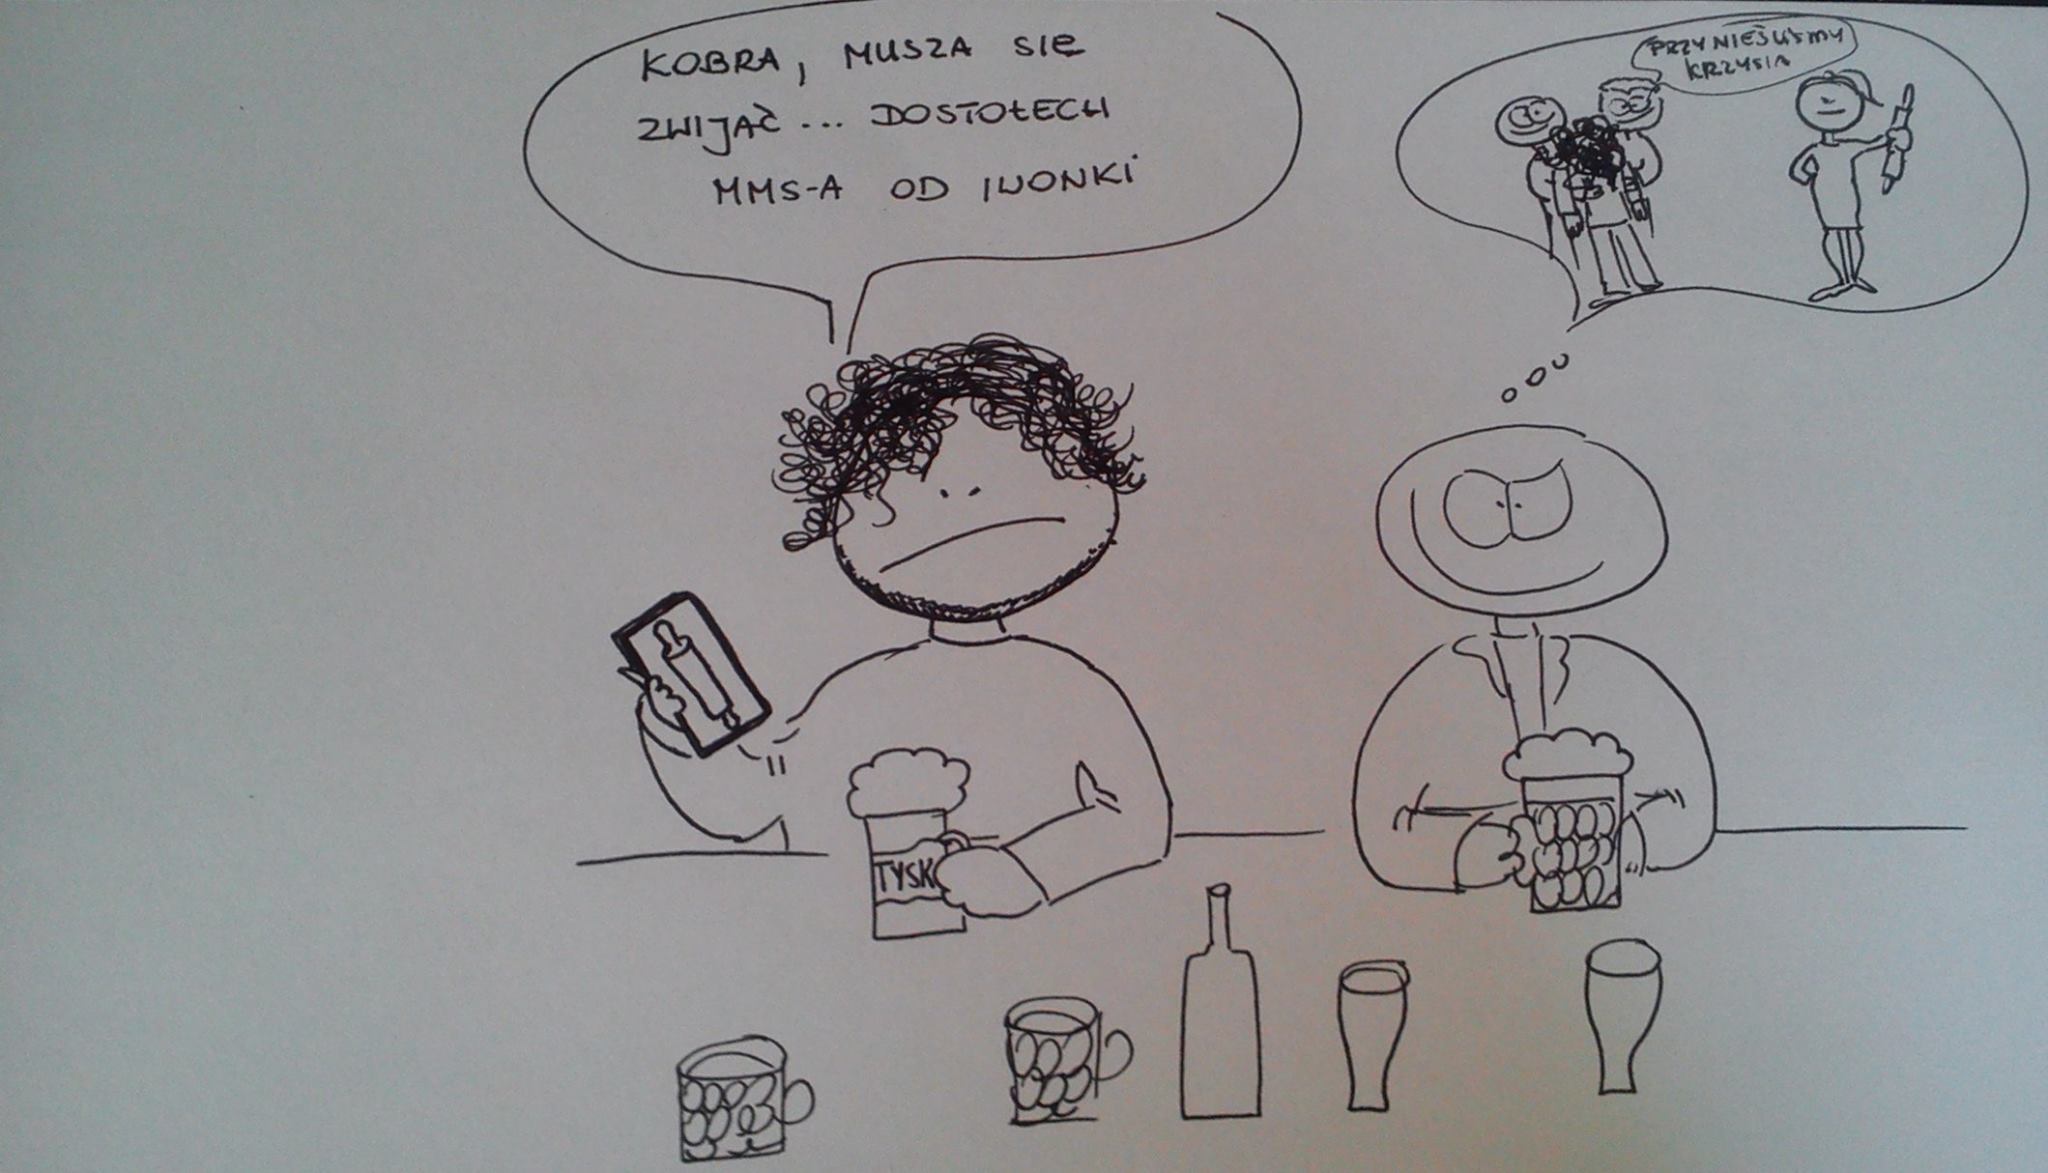 KOBRA, MUSZA SIE
ZWIJAĆ... DOSTOŁECH
MMS-A OD IWONKI
PRZYNIEŚLIŚMY
KRZYSIA
TYSK